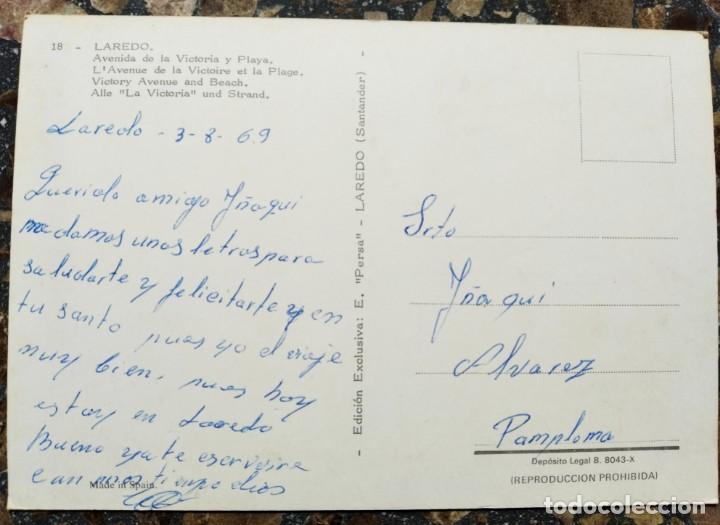 18 - LAREDO.
Avenida de la Victoria y Playa.
L'Avenue de la Victoire et la Plage.
Victory Avenue and Beach.
Alle "La Victoria" und Strand.
Laredo - 3-8-69
Querido amigo Yñaqui
mandamos unas letras para
saludarte y felicitarte en
tu santo pues yo el viaje
muy bien, pues hoy
estoy en Laredo
Bueno ya te escrivire
con mas tienpo dios
Made in Spain.
- Edición Exclusiva: E. "Persa" - LAREDO (Santander) -
Srto
Yñaqui
Alvarez
Pamplona
Depósito Legal B. 8043-X
(REPRODUCCION PROHIBIDA)
todocoleccion